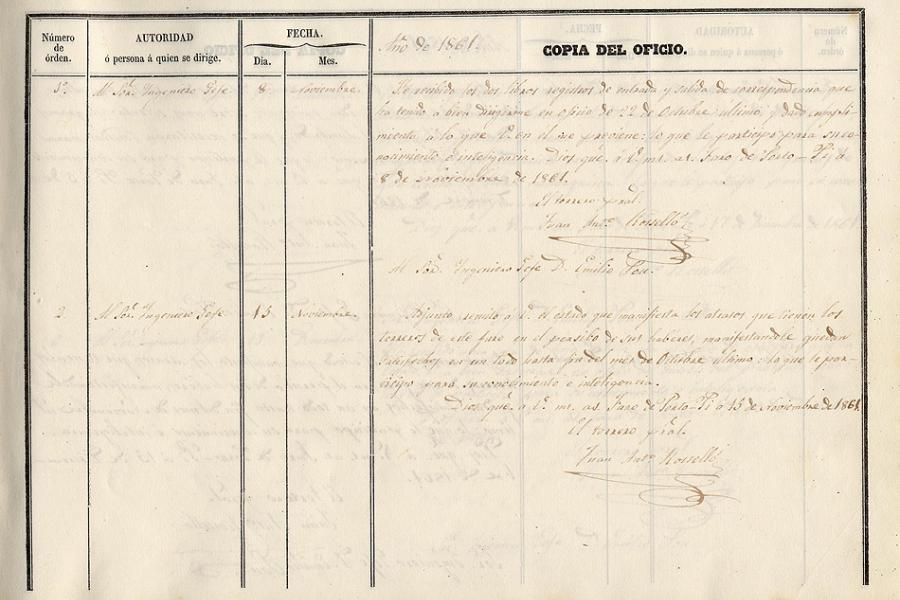 Número de órden.
AUTORIDAD
ó persona á quien se dirige.
FECHA.
Dia.
Mes.
Año de 1861.
COPIA DEL OFICIO.
1º.
Al Sor. Ingeniero Gefe
8
Noviembre.
He recibido los dos libros registros de entrada y salida de correspondencia que
ha tenido á bien dirigirme en oficio de 22 de Octubre último, y dado cumpli-
miento á lo que V. en él me previene: lo que le participo para su co-
nocimiento é inteligencia. Dios gue. á V. ms. as. Faro de Porto-Pi á
8 de Noviembre de 1861.
El torrero pral.
Juan Anto. Rosselló
Al Sor. Ingeniero Gefe D. Emilio Pou.
2.
Al Sor. Ingeniero Gefe.
15
Noviembre.
Adjunto remito á V. el estado que manifiesta los atrasos que tienen los
torreros de este faro en el percibo de sus haberes, manifestandole quedan
satisfechos en un todo hasta fin del mes de Octubre último: lo que le par-
ticipo para su conocimiento é inteligencia.
Dios gue. á V. ms. as. Faro de Porto-Pi á 15 de Noviembre de 1861.
El torrero pral.
Juan Anto. Rosselló